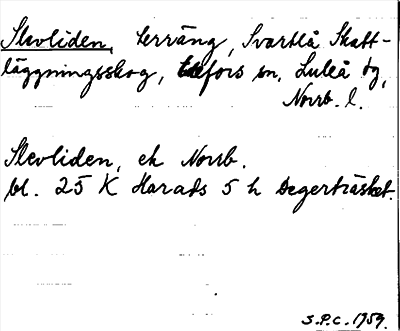 Slevliden, terräng, Svartlå Skatt-
läggningsskog, Edefors sn, Luleå tg,
Norrb. l.
Slevliden, ek Norrb.
bl. 25 K Harads 5 h Degerträsket.
S.P.C. 1959.